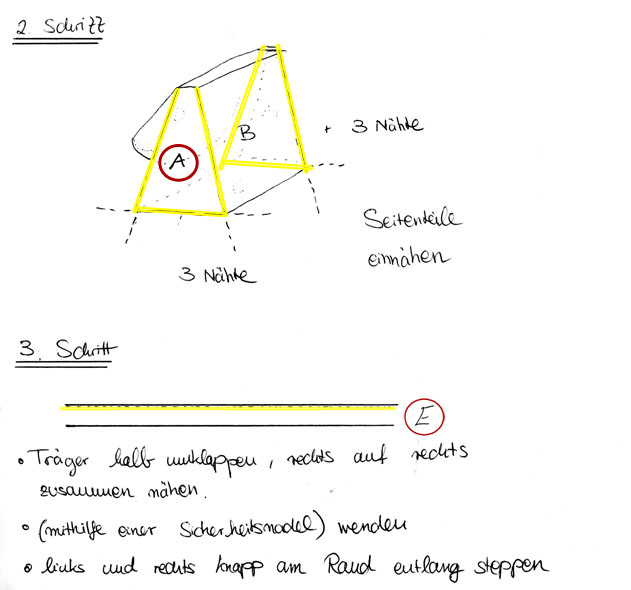 2. Schritt
B
+ 3 Nähte
A
Seitenteile
einnähen
3 Nähte
3. Schritt
E
• Träger halb umklappen, rechts auf rechts
zusammen nähen.
• (mithilfe einer Sicherheitsnadel) wenden
• links und rechts knapp am Rand entlang steppen